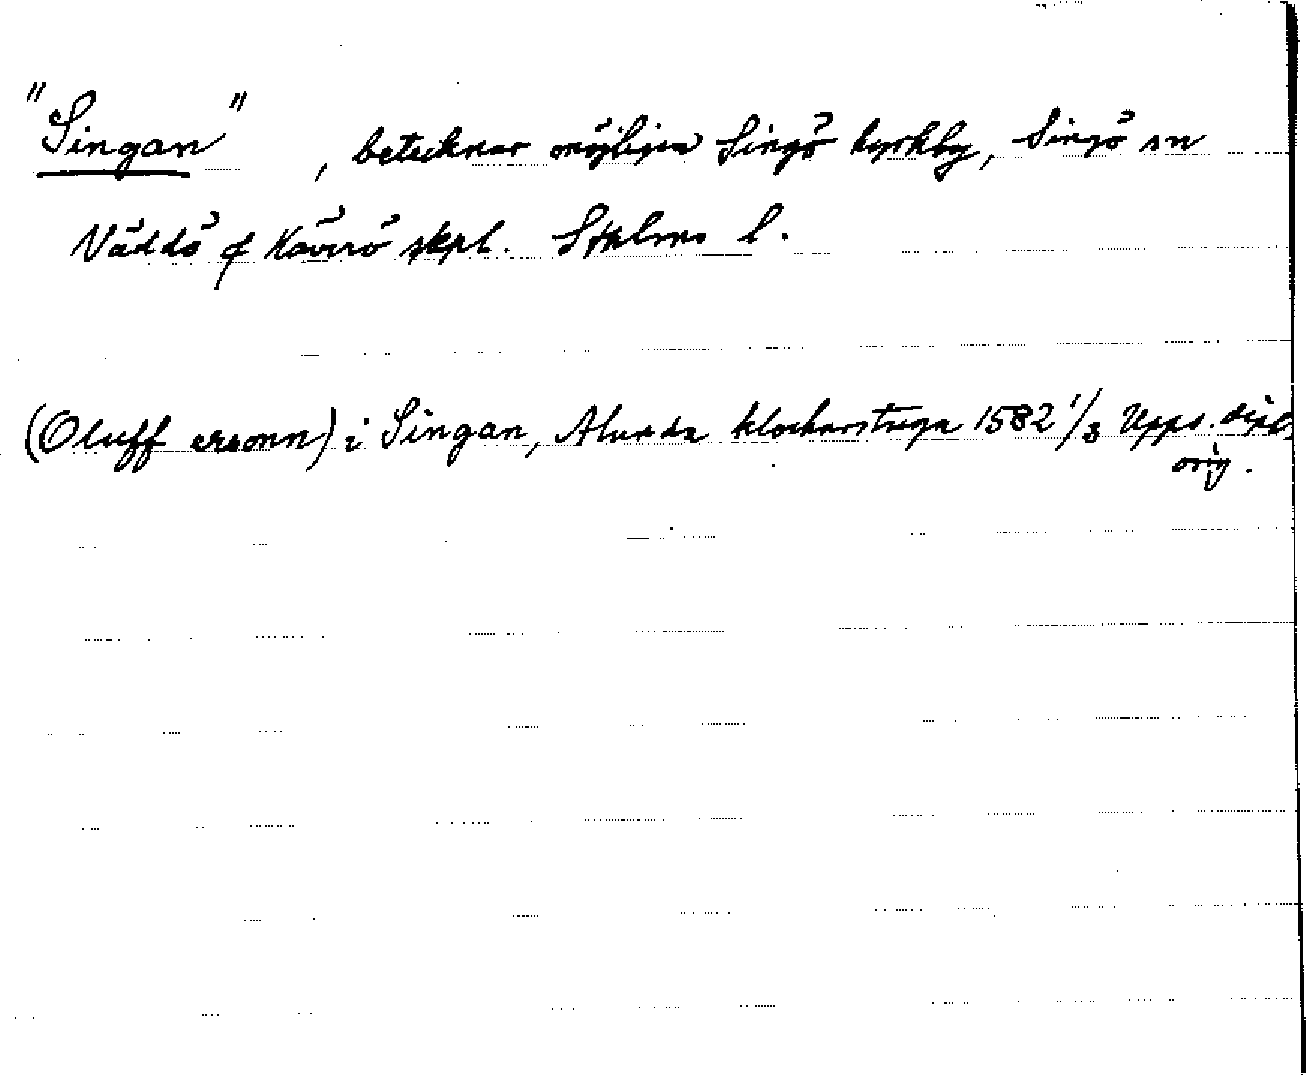 "Singan", betecknar möjligen Singö kyrkby, Singö sn
Väddö & Häverö skpl. Sthlms l.
(Oluff ersonn) i Singan, Alunda klockarstuga 1582 1/3 Upps. dipl.
orig.